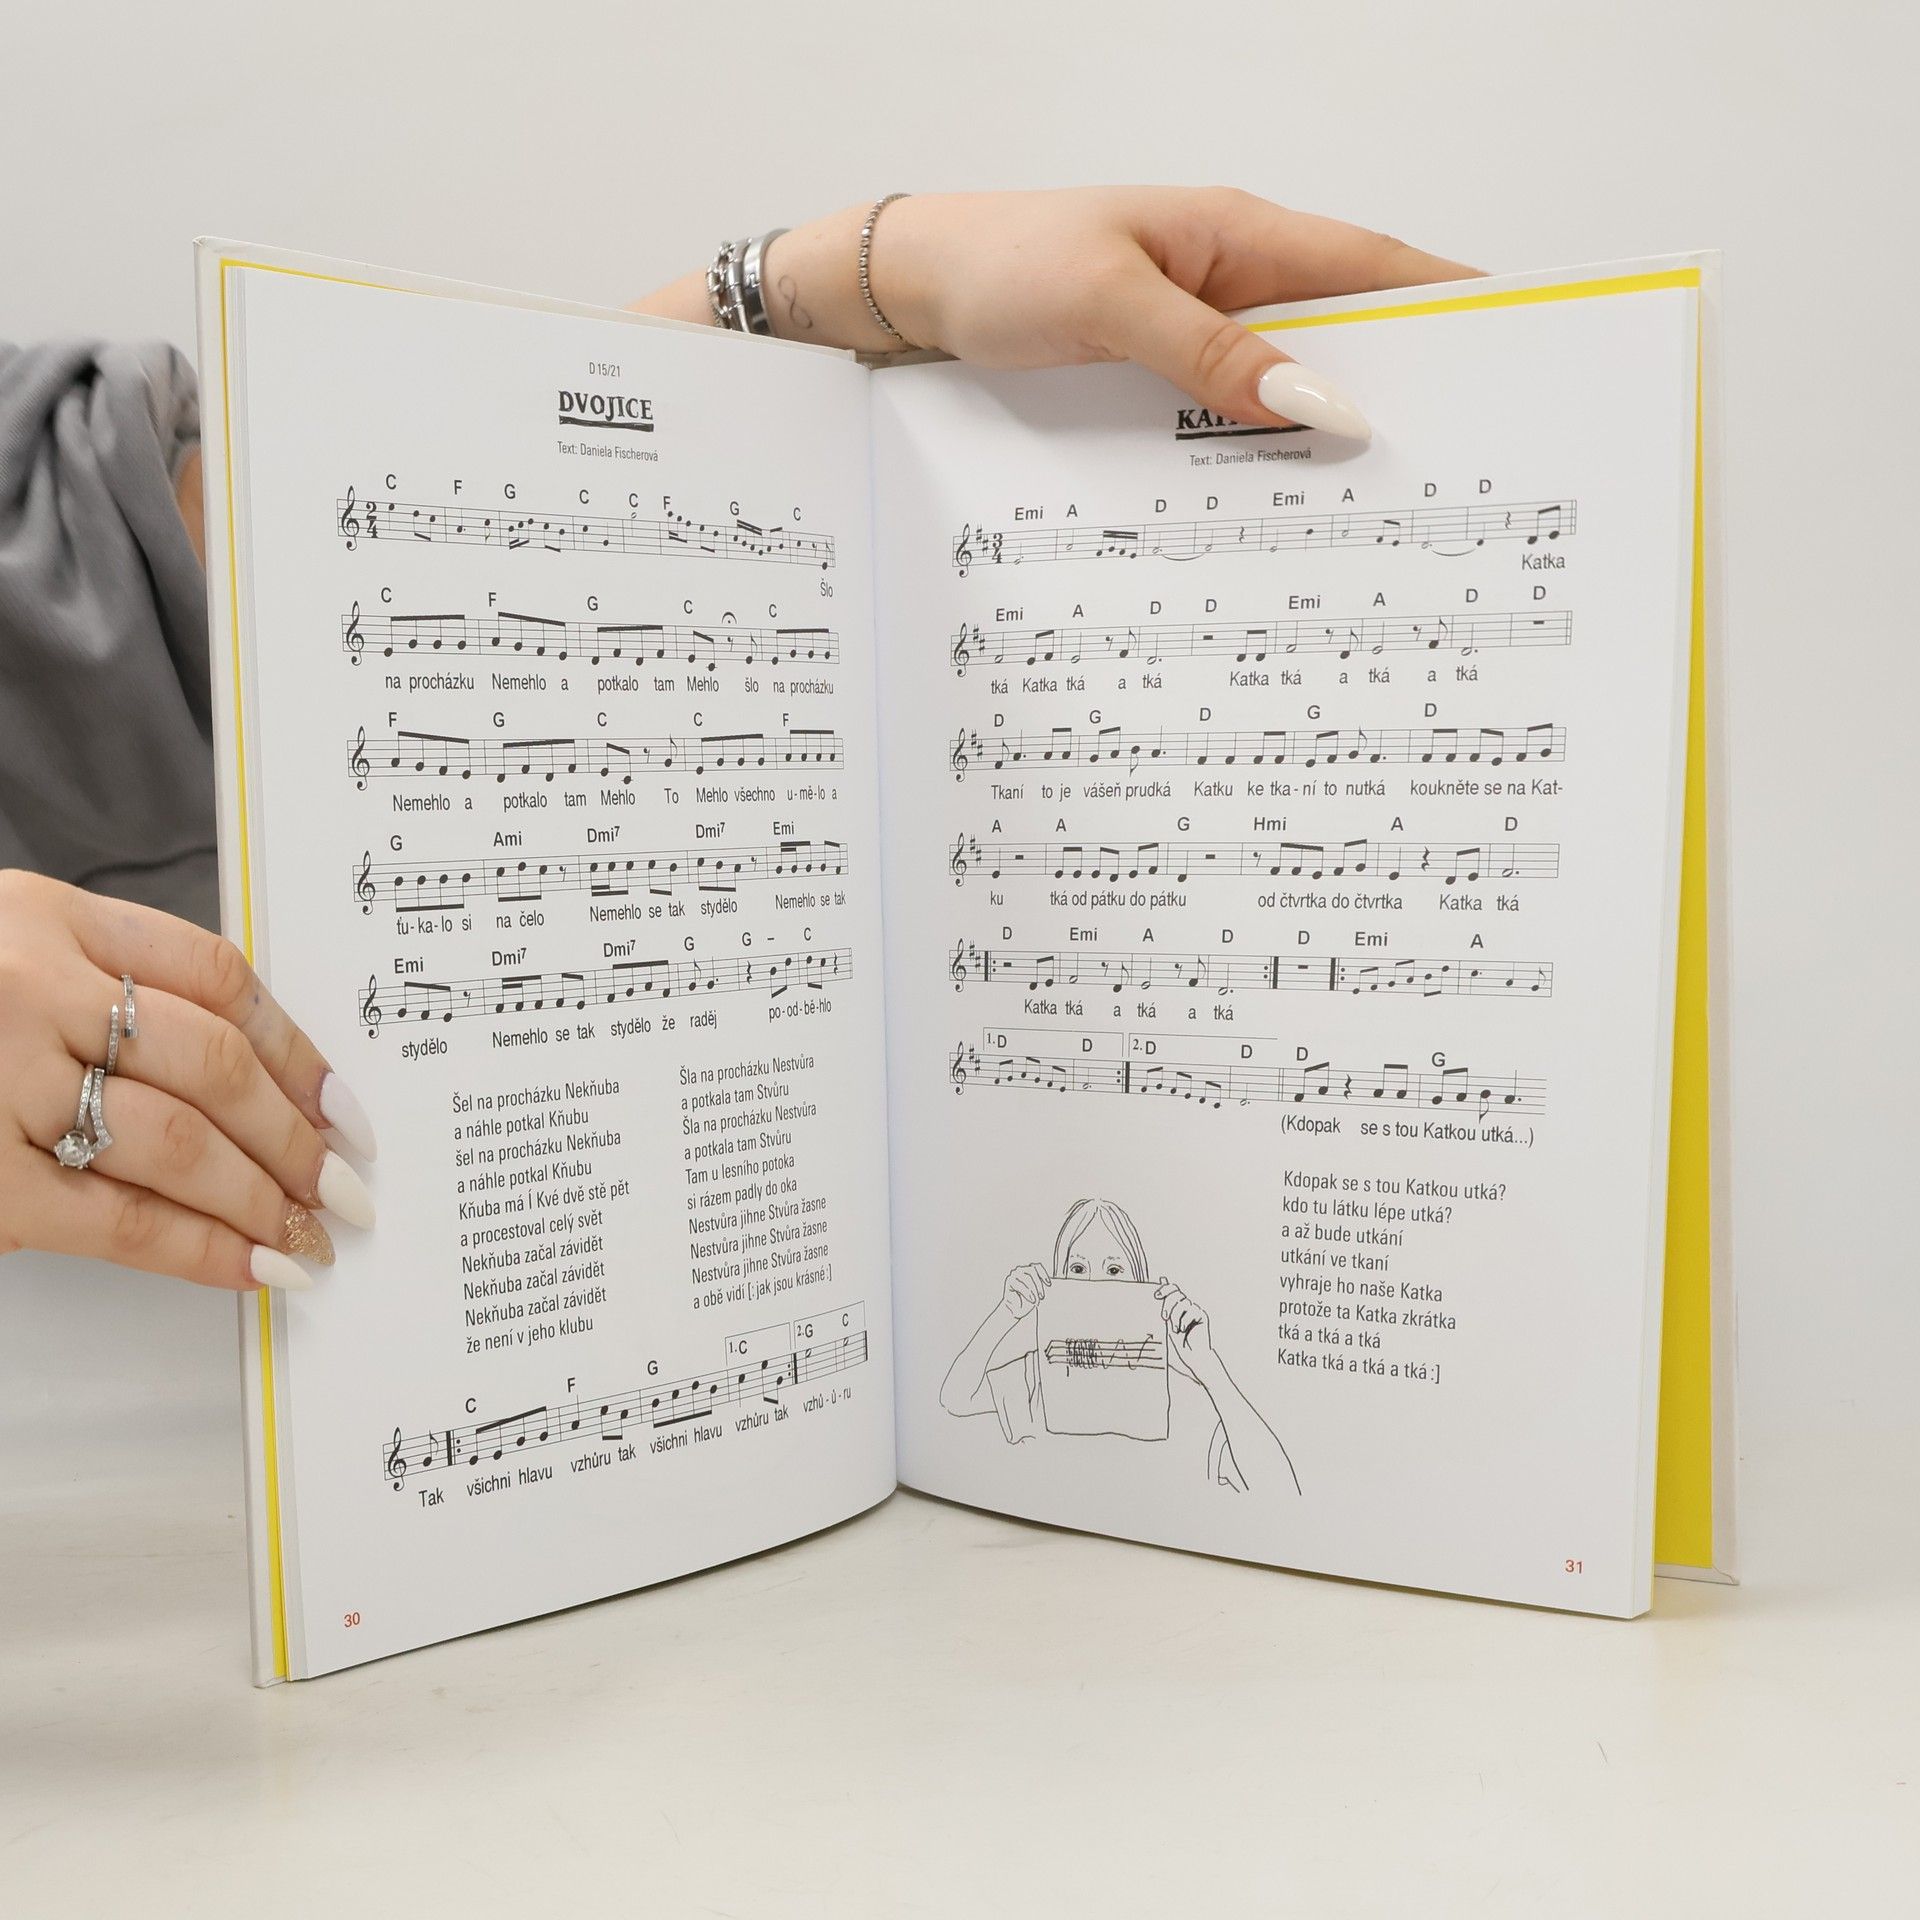 D 15/21
DVOJICE
Text: Daniela Fischerová
C F G C C F G C
2
4
Šlo
C F G C C
na procházku Nemehlo a potkalo tam Mehlo šlo na procházku
F G C C F
Nemehlo a potkalo tam Mehlo To Mehlo všechno u-mě-lo a
G Ami Dmi7 Dmi7 Emi
ťu-ka-lo si na čelo Nemehlo se tak stydělo Nemehlo se tak
Emi Dmi7 Dmi7 G G – C
stydělo Nemehlo se tak stydělo že raděj po-od-bě-hlo
Šel na procházku Nekňuba
a náhle potkal Kňubu
šel na procházku Nekňuba
a náhle potkal Kňubu
Kňuba má Í Kvé dvě stě pět
a procestoval celý svět
Nekňuba začal závidět
Nekňuba začal závidět
Nekňuba začal závidět
že není v jeho klubu
Šla na procházku Nestvůra
a potkala tam Stvůru
Šla na procházku Nestvůra
a potkala tam Stvůru
Tam u lesního potoka
si rázem padly do oka
Nestvůra jihne Stvůra žasne
Nestvůra jihne Stvůra žasne
Nestvůra jihne Stvůra žasne
a obě vidí [: jak jsou krásné :]
C F G 1. C 2. G C
Tak všichni hlavu vzhůru tak všichni hlavu vzhůru tak vzhů-ů-ru
30
Text: Daniela Fischerová
Emi A D D Emi A D D
3
4
Katka
Emi A D D Emi A D D
tká Katka tká a tká Katka tká a tká a tká
D G D G D
Tkaní to je vášeň prudká Katku ke tka-ní to nutká koukněte se na Kat-
A A G Hmi A D
ku tká od pátku do pátku od čtvrtka do čtvrtka Katka tká
D Emi A D D Emi A
Katka tká a tká a tká
1. D D 2. D D D G
(Kdopak se s tou Katkou utká...)
Kdopak se s tou Katkou utká?
kdo tu látku lépe utká?
a až bude utkání
utkání ve tkaní
vyhraje ho naše Katka
protože ta Katka zkrátka
tká a tká a tká
Katka tká a tká a tká :]
31